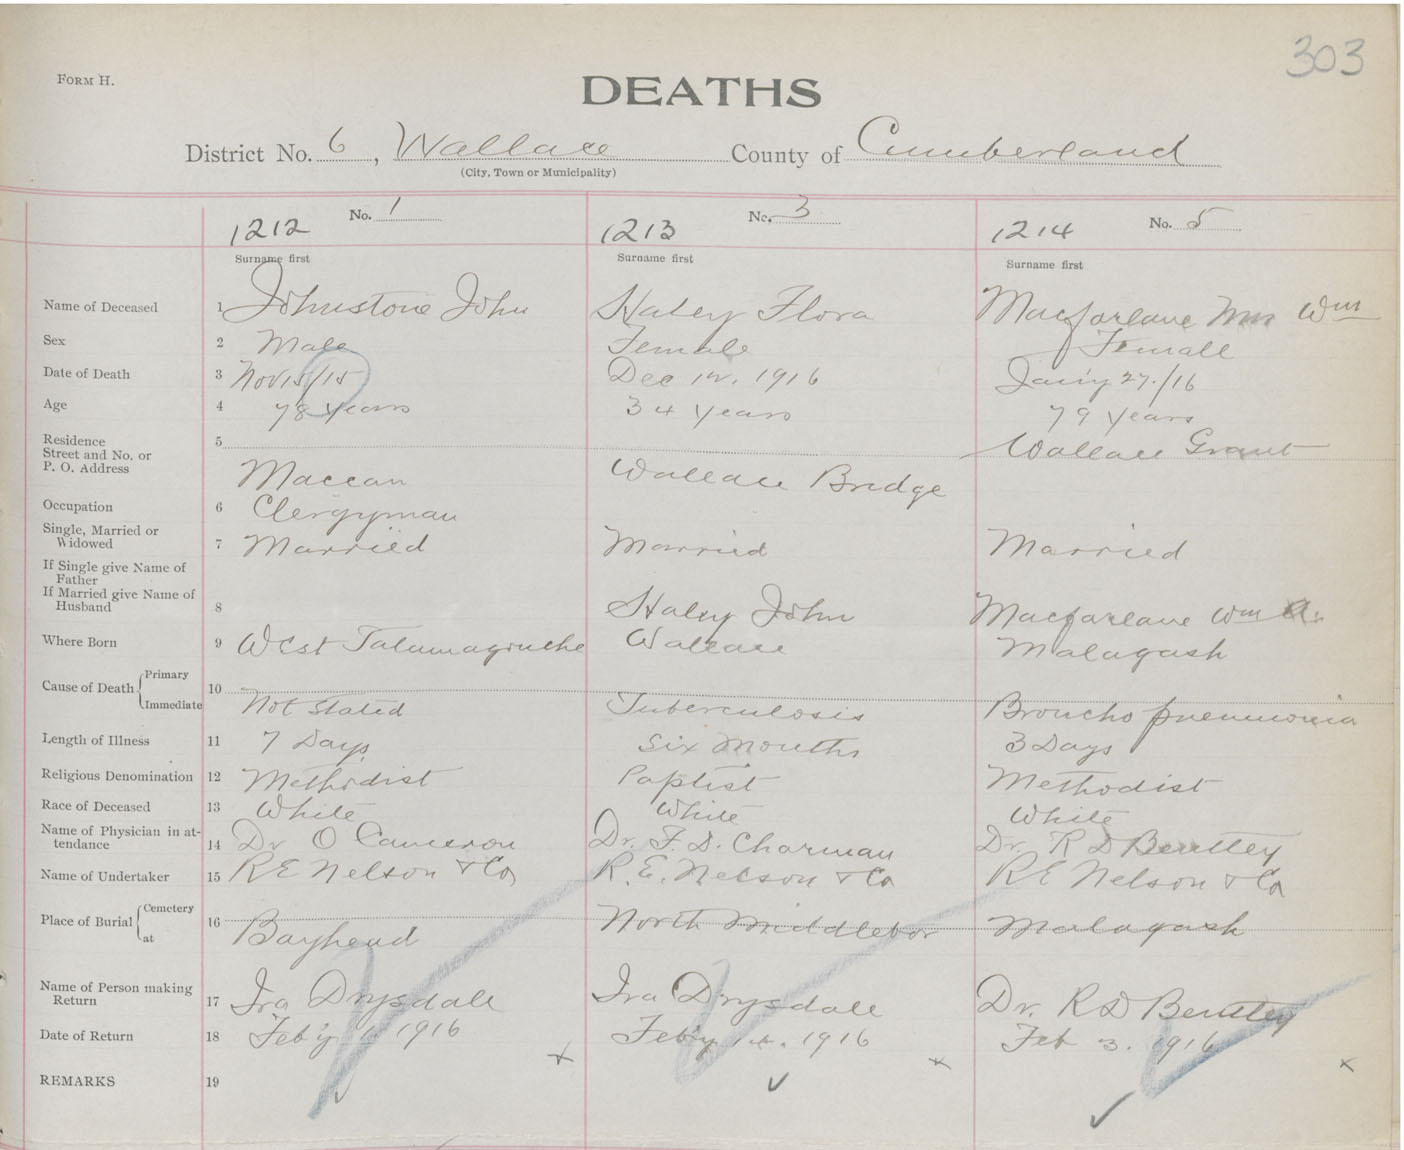 303
FORM H.
DEATHS
District No. 6, Wallace County of Cumberland
(City, Town or Municipality)
No. 1 No. 3 No. 5
1212 1213 1214
Surname first Surname first Surname first
Name of Deceased 1 Johnstone John Haley Flora Macfarlane Mrs Wm
Sex 2 Male Female Female
Date of Death 3 Nov 15/15 Dec 12. 1916 Jan'y 27./16
Age 4 78 years 34 years 79 years
Residence 5
Street and No. or Wallace Grant
P. O. Address Maccan Wallace Bridge
Occupation 6 Clergyman
Single, Married or
Widowed 7 Married Married Married
If Single give Name of
Father
If Married give Name of
Husband 8 Haley John Macfarlane Wm
Where Born 9 West Tatamagouche Wallace Malagash
Cause of Death Primary 10
Immediate Not stated Tuberculosis Broncho pneumonia
Length of Illness 11 7 Days Six Months 3 Days
Religious Denomination 12 Methodist Baptist Methodist
Race of Deceased 13 White White White
Name of Physician in at-
tendance 14 Dr O Cameron Dr. F. D. Charman Dr. R D Bentley
Name of Undertaker 15 R E Nelson & Co R. E. Nelson & Co R E Nelson & Co
Place of Burial Cemetery 16
at Bayhead North Middlebor Malagash
Name of Person making
Return 17 Ira Drysdale Ira Drysdale Dr. R D Bentley
Date of Return 18 Feb'y 1 1916 Feb'y 14. 1916 Feb 3. 1916
REMARKS 19